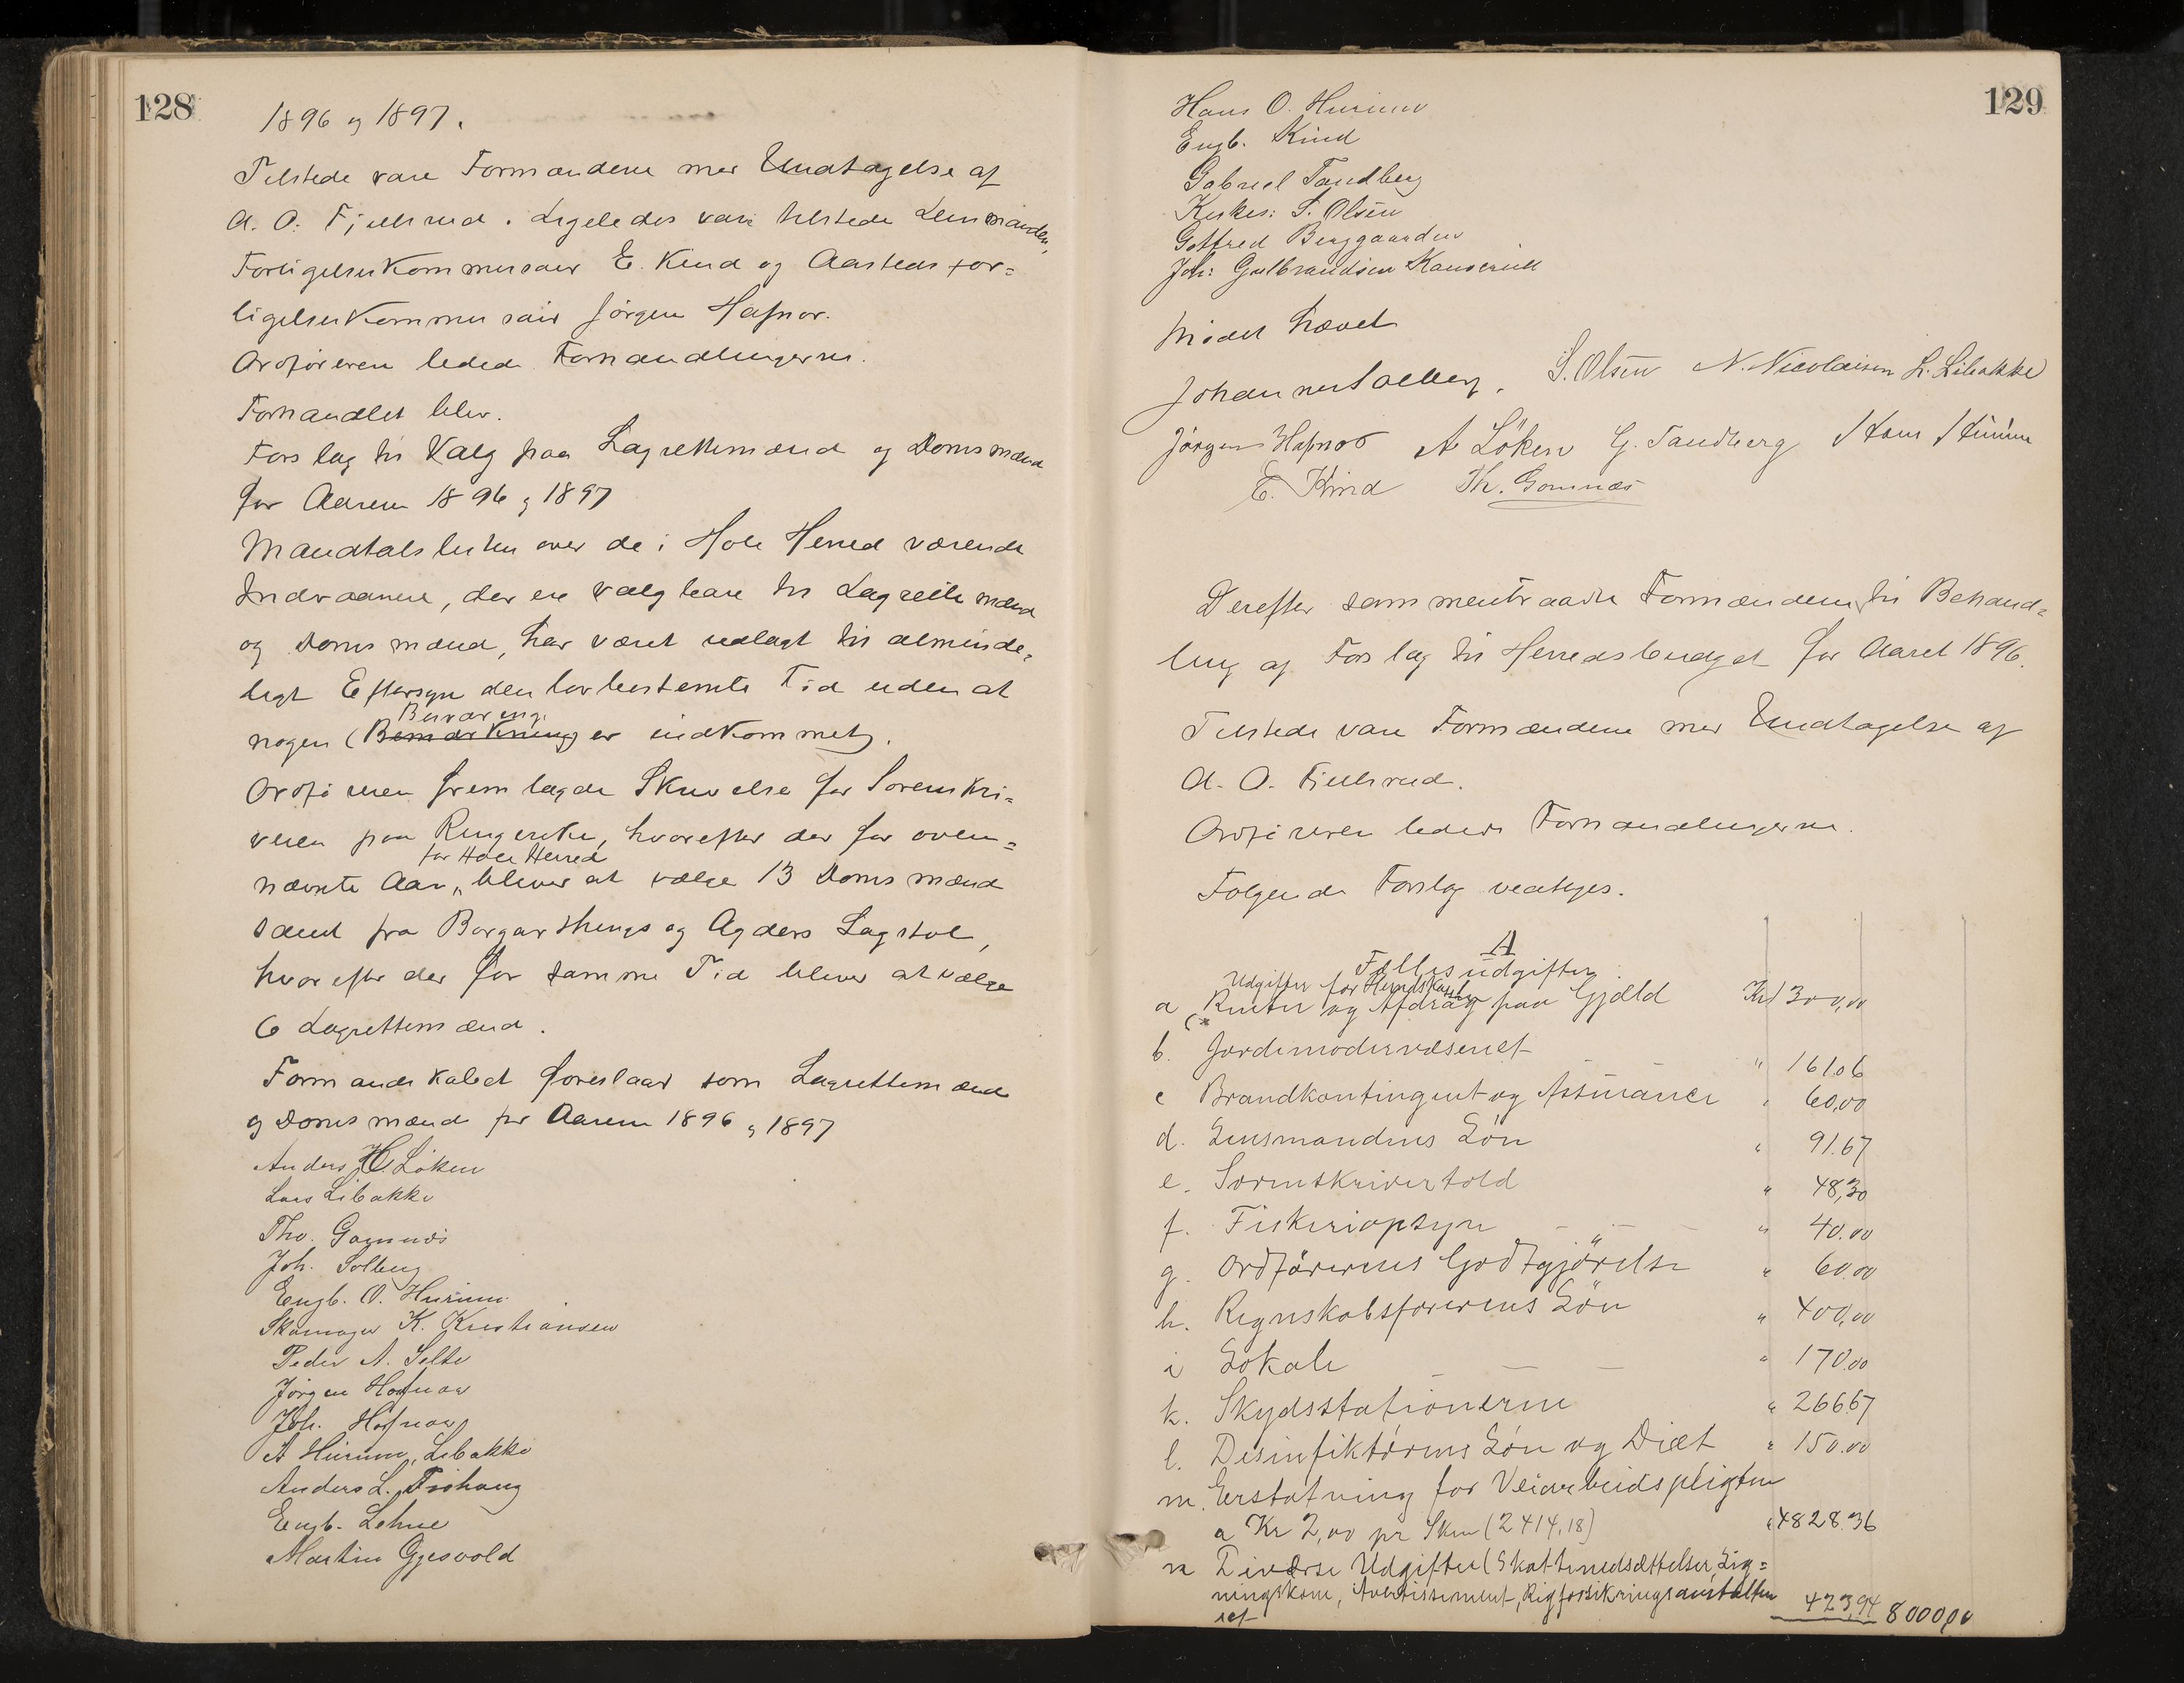 128
1896 og 1897.
Tilstede vare Formændene med Undtagelse af
A. O. Fjeldsrud. Ligeledes vare tilstede Lensmanden,
Forligelseskommissair E. Kind og Aastedsfor=
ligelseskommissair Jörgen Hafnor.
Ordföreren ledede Forhandlingerne.
Forhandlet blev.
Forslag til Valg paa Lagrettemænd og Domsmænd
for Aarene 1896 og 1897
Mandtalslisten over de i Hole Herred værende
Indvaanere, der ere valgbare til Lagrettemænd
og Domsmænd, har været udlagt til alminde=
ligt Eftersyn den lovbestemte Tid uden at
Besværing
nogen (Bemærkning) er indkommet.
Ordföreren fremlagde Skrivelse fra Sorenskri=
veren paa Ringerike, hvorefter der for oven=
for Hole Herred
nævnte Aar, bliver at vælge 13 Domsmænd
samt fra Borgarthings og Agders Lagstol,
hvorefter der for samme Tid bliver at vælge
6 Lagrettemænd.
Formandskabet foreslaar som Lagrettemænd
og Domsmænd for Aarene 1896 og 1897
Anders H. Löken
Lars Libakke
Tho. Gomnæs
Joh. Solberg
Engb. O. Hurum
Skomager K. Kristiansen
Peder A. Selte
Jörgen Hafnor
Joh. Hafnor
A Hurum, Libakke
Anders L.
Engb. Lehne
Martin Gjesvold
129
Hans O. Hurum
Engb. Kind
Gabriel Tandberg
Kirkes: S. Olsen
Gotfred Berggaarden
Joh: Gulbrandsen
Mödet hævet
Johannes Solberg. S. Olsen N. Nicolaisen L. Libakke
Jörgen Hafnor A Löken G. Tandberg Hans Hurum
E. Kind Th. Gomnæs
Derefter sammentraadte Formændene til Behand=
ling af Forslag til Herredsbudget for Aaret 1896.
Tilstede vare Formændene med Undtagelse af
A. O. Fjeldsrud.
Ordföreren ledede Forhandlingerne.
Følgende Forslag vedtoges.
A
Fællesudgifter
Udgifter for Herredskassen
a Renter og Afdrag paa Gjæld Kr 1300,00
b. Jordemodervæsenet " 161.06
c Brandkontingent og Assurance " 60,00
d. Lensmandens Lön " 91.67
e. Sorenskrivertold " 48,30
f. Fiskeriopsyn - - - " 40.00
g. Ordförerens Godtgjörelse " 60.00
h. Regnskabsförerens Lön " 400,00
i Lokale - - - " 170.00
k. Skydsstationerne " 266.67
l. Desinfiktörens Lön og Diæt " 150.00
m. Erstatning for Veiarbeidspligten
a Kr 2,00 pr Skm (2414,18) " 4828.36
n Diverse Udgifter (Skattenedsættelser, Lig=
ningskom, Avertissement, Rigsforsikringsanstalten
423,94 8000,00